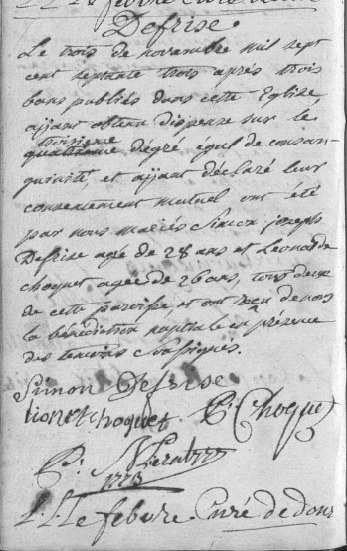 Lefebvre Curé
Defrise.
Le trois de novembre mil sept
cent septante trois après trois
bans publiés dans cette Eglise
aijant obtenu dispense sur le
troisieme
quatrieme degré egal de consan-
guinité, et aijant déclaré leur
consentement mutuel ont été
par nous mariés Simon joseph
Defrise agé de 28 ans et Leonarde
choquet agée de 26 ans, tous deux
de cette paroisse et ont reçu de nous
la bénédiction nuptiale en présence
des temoins soussignés.
Simon Defrise
choquet Choquet
1773
Lefebvre Curé de dour